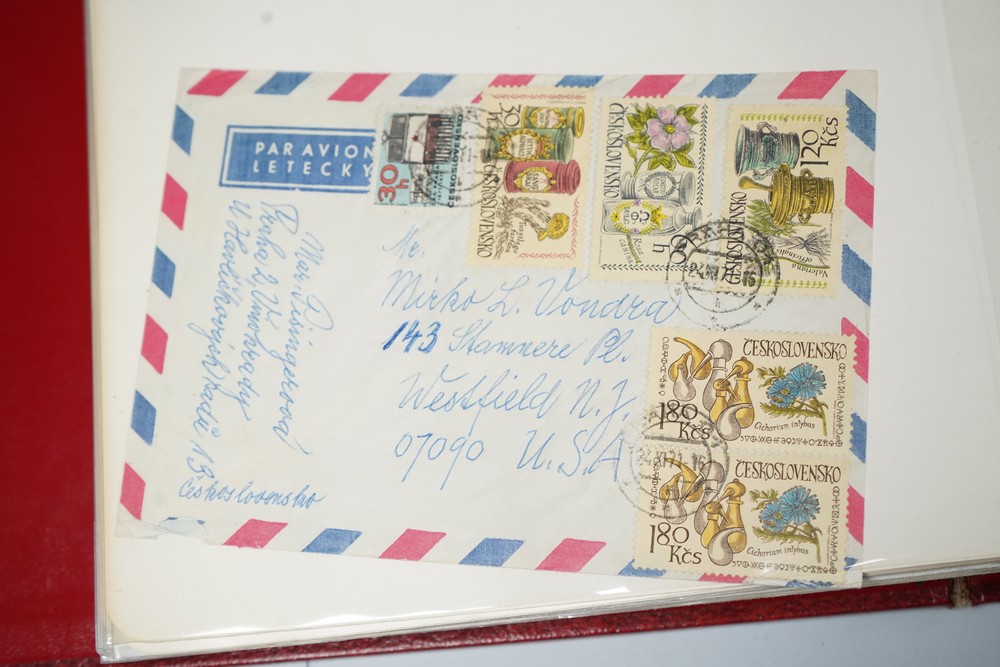 PAR AVION
LETECKY
30h
ČESKOSLOVENSKO
30
ČESKOSLOVENSKO
ČESKOSLOVENSKO
60 h
Rosa canina
1,20 Kčs
ČESKOSLOVENSKO
Valeriana officinalis
Mr.
Mirko L. Vondra
143 Stamnere Pl.
Westfield N. J.
07090 U.S.A
Praha 2, Vinohrady
U Havlíčkových sadů 13
Československo
ČESKOSLOVENSKO
1,80 Kčs
Cichorium intybus
ČESKOSLOVENSKO
1,80 Kčs
Cichorium intybus